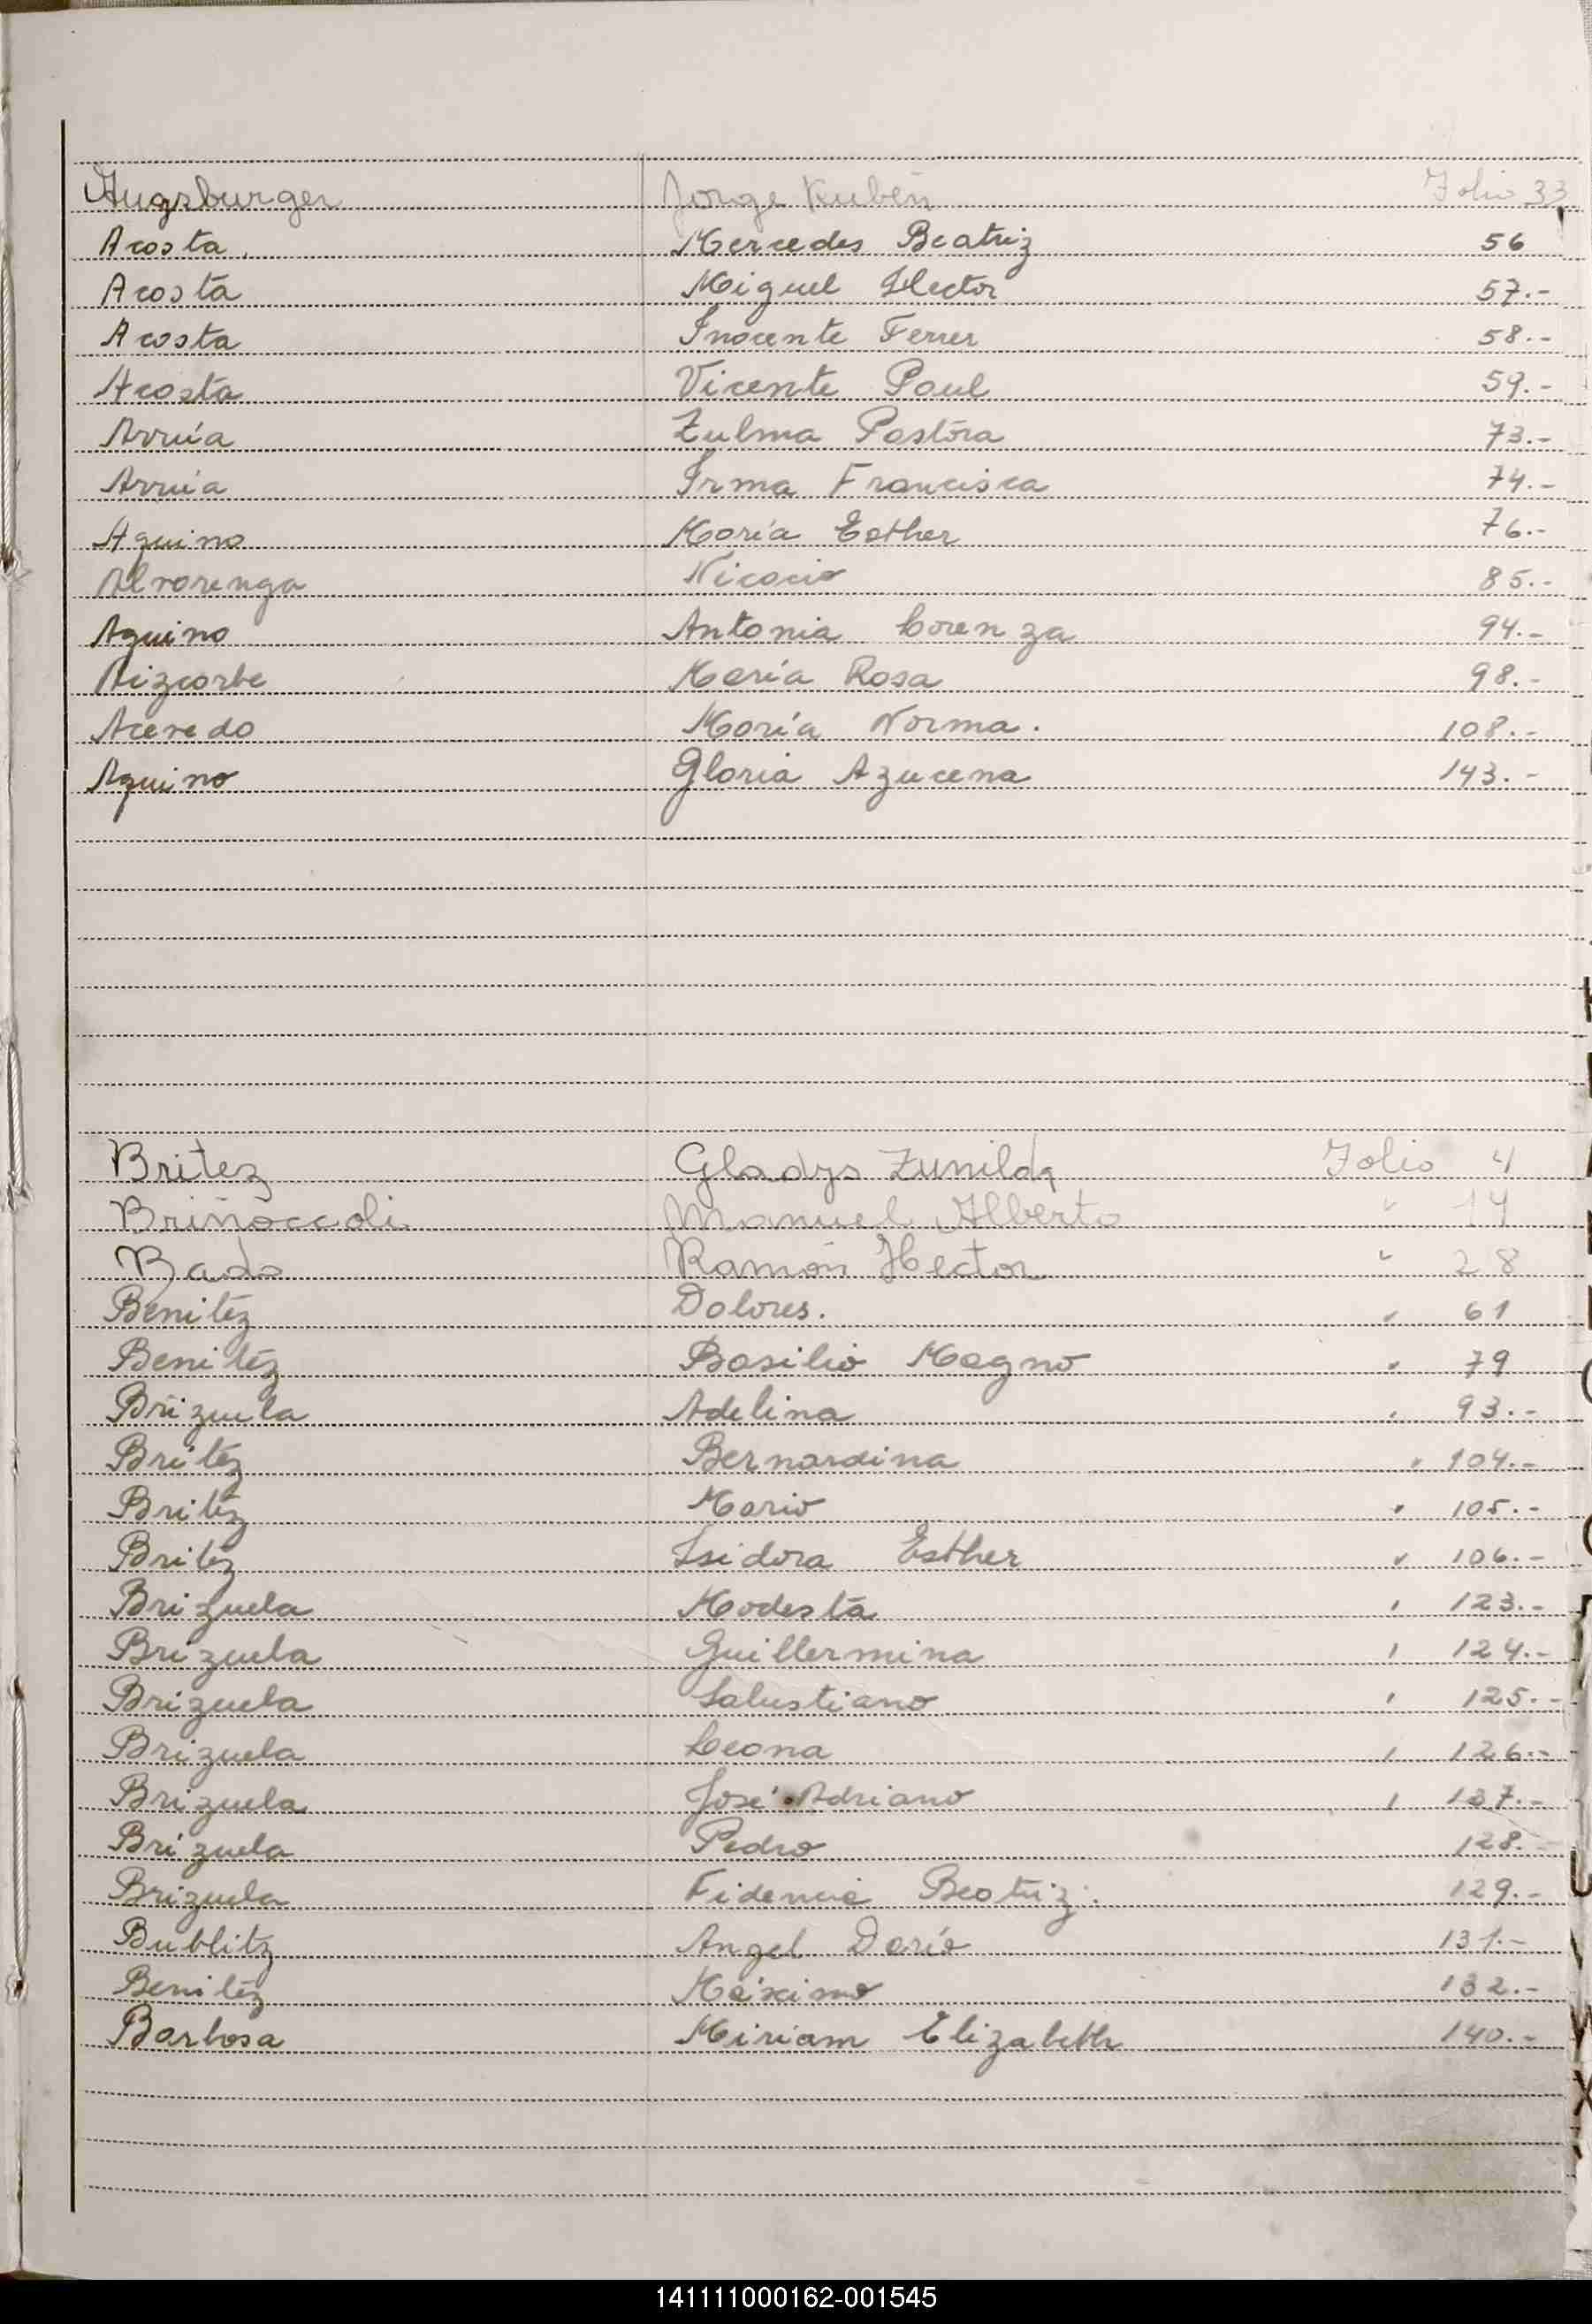 Augsburger Jorge Rubén Folio 33
Acosta Mercedes Beatriz 56
Acosta Miguel Hector 57.-
Acosta Inocente Ferrer 58.-
Acosta Vicente Paul 59.-
Arrúa Zulma Pastora 73.-
Arrúa Irma Francisca 74.-
Aquino María Esther 76.-
Alvarenga Nicacio 85.-
Aquino Antonia Lorenza 94.-
Aizcorbe María Rosa 98.-
Acevedo María Norma. 108.-
Aquino Gloria Azucena 143.-
Britez Gladys Zunilda Folio 4
Briñoccoli Manuel Alberto " 14
Bado Ramón Hector " 28
Benitéz Dolores. " 61
Benitéz Basilio Magno " 79
Brizuela Adelina " 93.-
Britéz Bernardina " 104.-
Britéz Mario " 105.-
Britéz Isidora Esther " 106.-
Brizuela Modesta " 123.-
Brizuela Guillermina " 124.-
Brizuela Salustiano " 125.-
Brizuela Leona " 126.-
Brizuela José Adriano " 127.-
Brizuela Pedro 128.-
Brizuela Fidencia Beatriz. 129.-
Bublitz Angel Darío 131.-
Benitéz Máximo 132.-
Barbosa Miriam Elizabeth 140.-
141111000162-001545